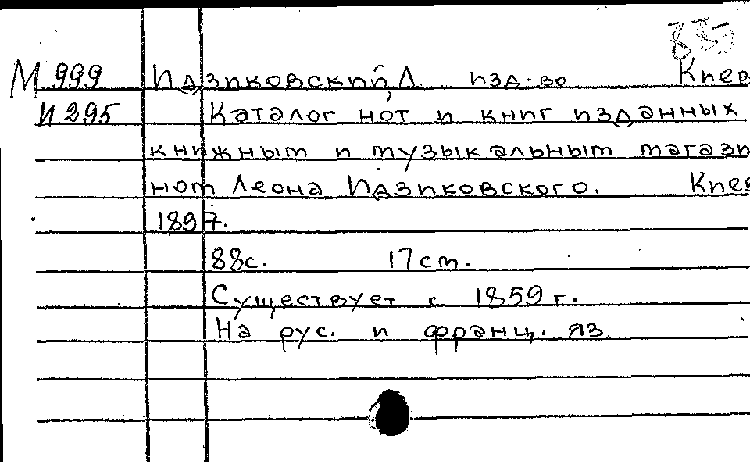 835
М 999 Идзиковский, Л. изд-во Киев
И 295 Каталог нот и книг изданных
книжным и музыкальным магази
ном Леона Идзиковского. Киев
1897.
88с. 17см.
Существует с 1859 г.
На рус. и франц. яз.